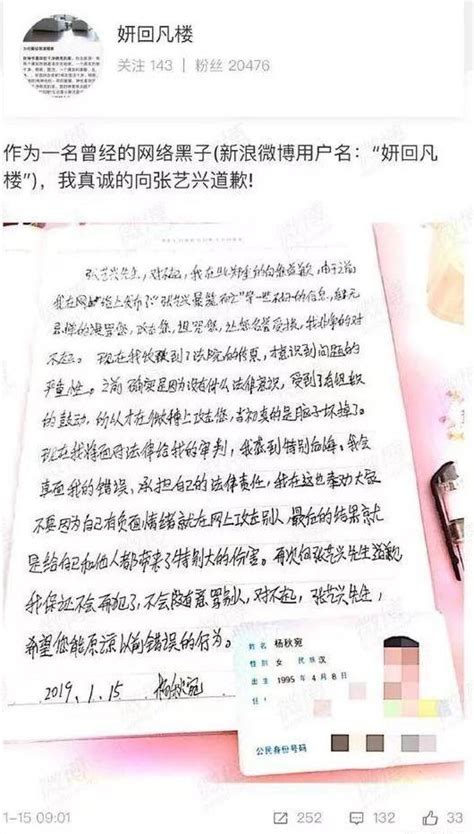 妍回凡楼
关注 143 | 粉丝 20476
作为一名曾经的网络黑子(新浪微博用户名：“妍回凡
楼”)，我真诚的向张艺兴道歉!
张艺兴先生，对不起，我在此郑重的向您道歉，由于之前
我在网络上发布了"张艺兴暴
您，攻击您，让您名誉受损，我非常的对
不起。现在我收到了法院的传票，才意识到问题的
严重性。之前确实是因为没有什么法律意识，受到了有组织
的鼓动，所以才在微博上攻击您，当初真的是脑子坏掉了。
现在我将面对法律给我的审判，我感到特别后悔。我会
直面我的错误、承担自己的法律责任，我在这也奉劝大家
不要因为自己有负面情绪就在网上攻击别人，最后的结果就
是给自己和他人都带来了特别大的伤害。再次向张艺兴先生道歉
我保证不会再犯了，不会随意骂别人，对不起，张艺兴先生，
希望您能原谅以前错误的行为。
2019.1.15 杨秋宛
姓名 杨秋宛
性别 女 民族 汉
出生 1995 年 4 月 8 日
住址
公民身份号码
1-15 09:01
252
132
33